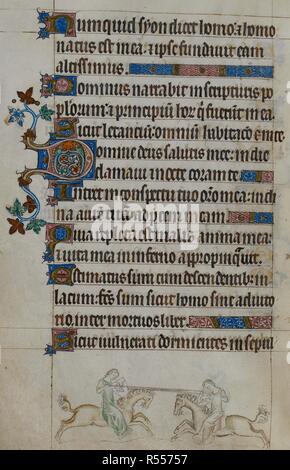 Numquid syon dicet homo: ⁊ homo
natus est in ea: ⁊ ipse fundavit eam
altissimus.
Dominus narrabit in scripturis po
pulorum: ⁊ principum hor̄ q̇ fuerunt in ea.
Sicut letantium: omniū habitacō ē in te.
Domine deus salutis mee: in die
clamavi ⁊ nocte coram te.
Intret in conspectu tuo orō mea: in cli
na aurē tuā ad precem meam.
Quia repleta est malis anima mea:
⁊ vita mea in inferno appropinquavit.
Estimatus sum cum descendentib: in
lacum: fc̄s sum sicut homo sine adiuto
rio. inter mortuos liber.
Sicut vulnerati dormientes in sepul
alamy
Image ID: R55757
www.alamy.com